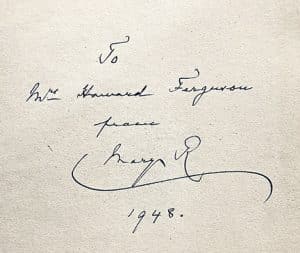 To
Mrs Howard Ferguson
from
Mary R
1948.